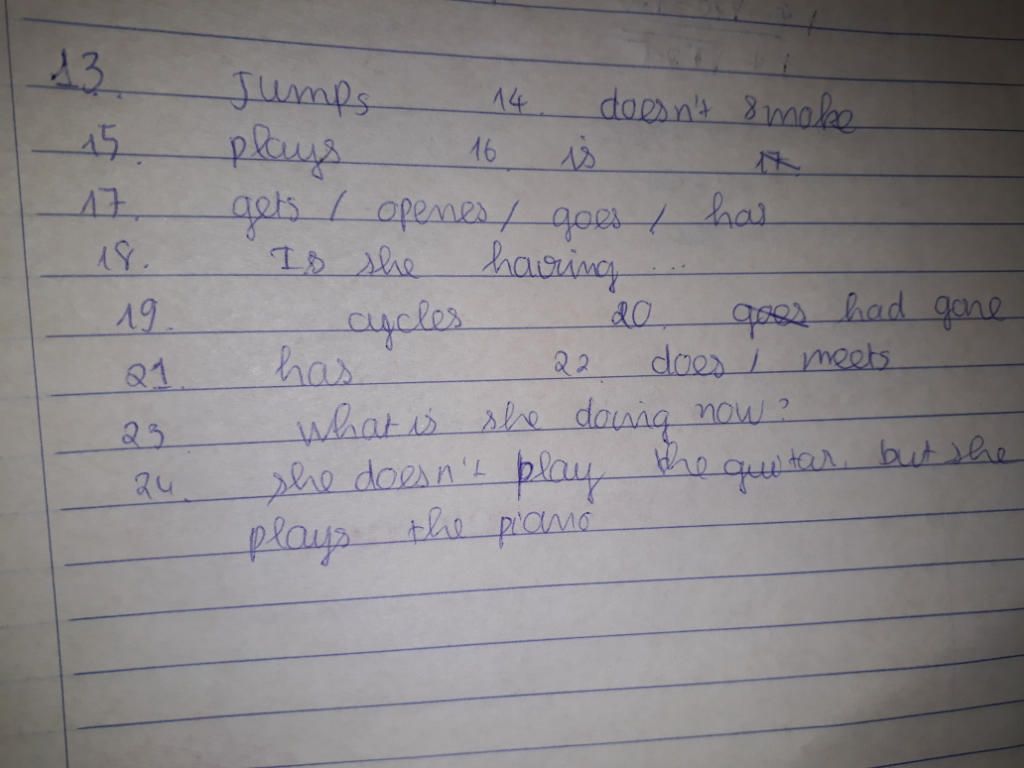 13. Jumps 14. doesn't smoke
15. plays 16 is
17. gets / openes / goes / has
18. Is she having ...
19. cycles 20. goes had gone
21. has 22. does / meets
23 What is she doing now?
24. she doesn't play the guitar. but she
plays the piano